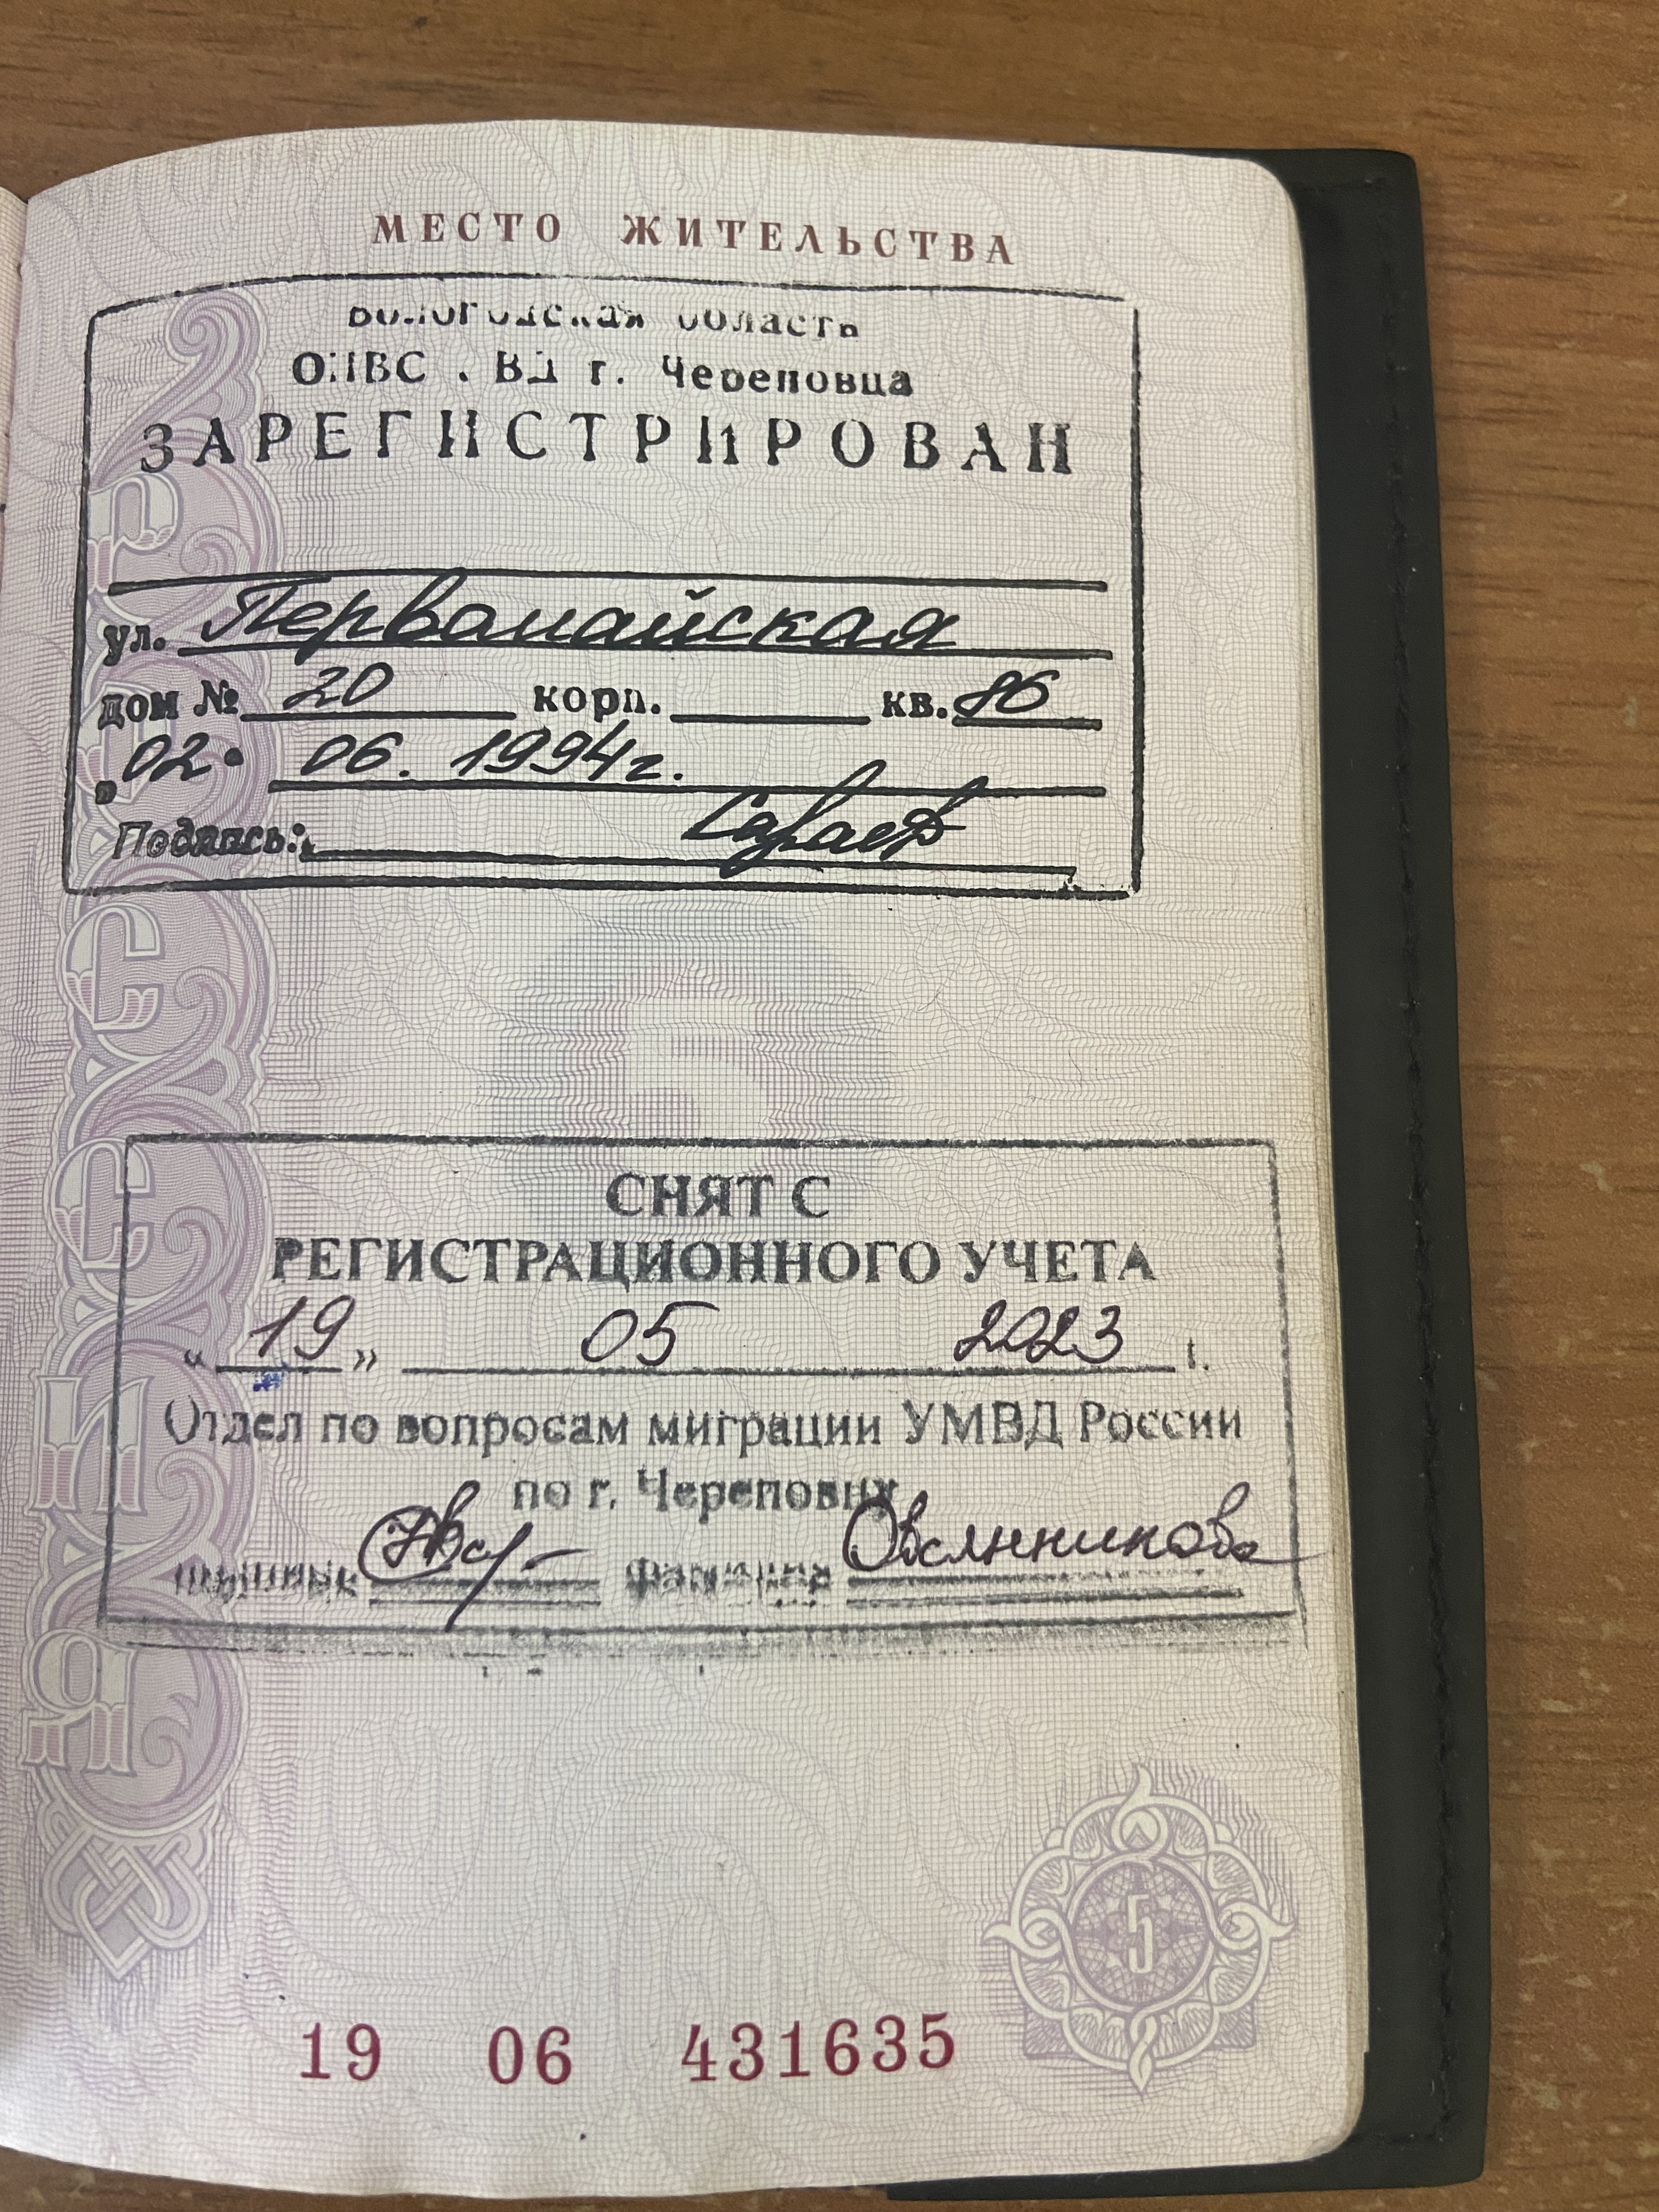 МЕСТО ЖИТЕЛЬСТВА
Вологодская область
ОПВС УВД г. Череповца
ЗАРЕГИСТРИРОВАН
ул. Первомайская
дом № 20 корп. кв. 86
„02" 06. 1994г.
Подпись:
СНЯТ С
РЕГИСТРАЦИОННОГО УЧЕТА
« 19 » 05 2023 г.
Отдел по вопросам миграции УМВД России
по г. Череповцу
Овсянникова
РОССИЯ
5
19 06 431635